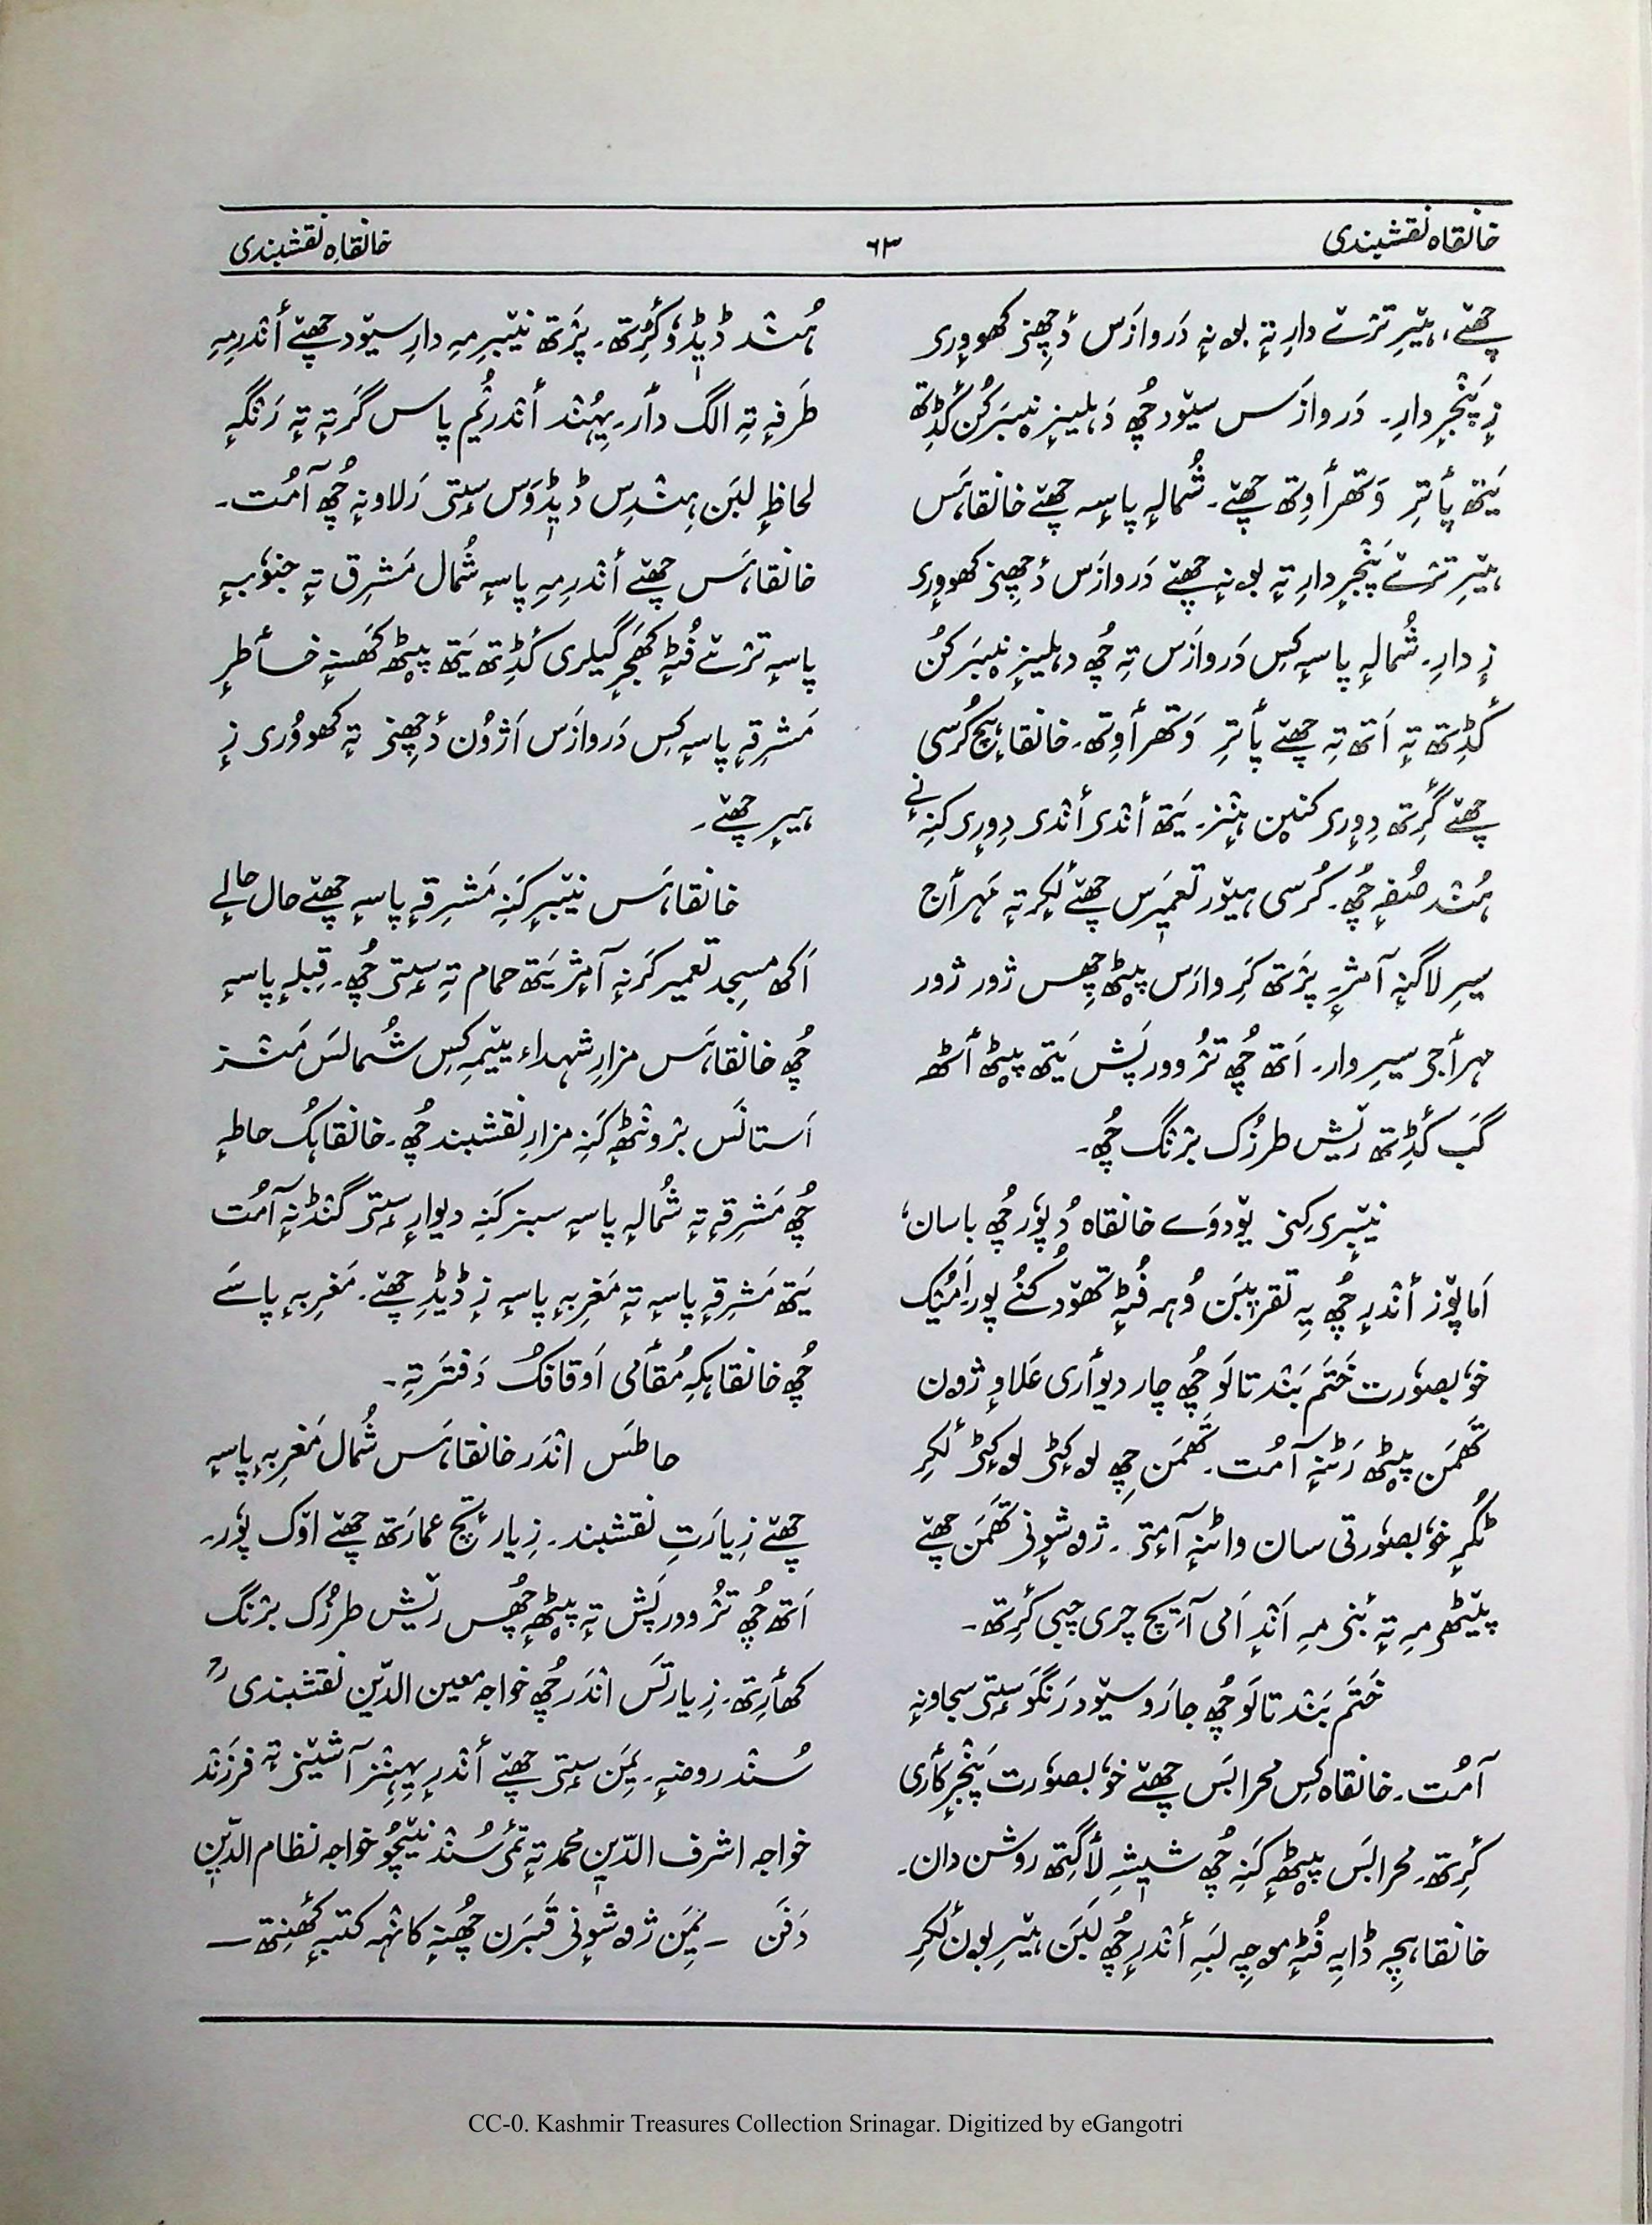 خانقاہ نقشبندی
۶۳
خانقاہ نقشبندی
چھےٚ، ہیٚرِ ترٛے دارِ تہٕ بۄنہٕ دَروازَس دٔچھِنۍ کھووٕرۍ
زٕ پَنٛجرٕ دارِ۔ دَروازَس سیٚود چُھ دَہلیزٕ نیبَر کُن کٔڈِتھ
یَتھ پأترِ وَتھرٲوِتھ چھےٚ۔ شُمالہِ پاسہِ چھےٚ خانقاہَس
ہیٚرِ ترٛے پَنٛجرٕ دارِ تہٕ بۄنہٕ چھےٚ دَروازَس دٔچھِنۍ کھووٕرۍ
زٕ دارِ۔ شُمالہِ پاسہِ کِس دَروازَس تہِ چُھ دہلیزٕ نیبَر کُن
کٔڈِتھ تہٕ اَتھ تہِ چھےٚ پأترِ وَتھرٲوِتھ۔ خانقاہٕچ کُرسی
چھےٚ کٔرِتھ دِوٕرۍ کنین ہٕنٛز۔ یَتھ أنٛدۍ أنٛدۍ دِوٕرۍ کَنہِ نے
ہُنٛد صُفہٕ چُھ۔ کُرسی ہیٚور تعمیٖرَس چھےٚ لٔکرِ تہٕ مَہرٲج
سیرِ لاگنہٕ آمٕژ۔ پرٛتھ کَرِ وارَس پیٹھ چھِس ژور ژور
مہرٲجۍ سیرِ وار۔ اَتھ چُھ ترُٛ وور پَش یَتھ پیٹھ أٹھ
گَب کٔڈِتھ ریٚش طرزُک برٛنگ چُھ۔
نیٚبرۍ کِنۍ یۆدوَے خانقاہ دُپوٗر چُھ باسان،
اَما پۆز أنٛدرٕ چُھ یہِ تقریبَن وُہہ فُٹہٕ تھۆد کُنُے پور۔ اَمیُک
خوٗبصوٗرت خَتَم بَنٛد تالَو چُھ چار دیوٲری علاوٕ ژون
تھَمَن پیٹھ رَٹنہٕ آمُت۔ تھَمَن چھِ لۄکٹۍ لۄکٹۍ لٔکرِ
ٹُکرٕ خوٗبصوٗرتی سان واٹنہٕ آمٕتۍ۔ ژۄشوٕنۍ تھَمَن چھےٚ
پیٚٹھِمہِ تہٕ بۄنِمہِ اَنٛدٕ اَمی آیتٕچ چری چپی کٔرِتھ۔
خَتَم بَنٛد تالَو چُھ جارَو سیٚود رَنگَو سٟتۍ سجاونہٕ
آمُت۔ خانقاہ کِس محرابَس چھےٚ خوٗبصوٗرت پَنٛجرٕ کٲری
کٔرِتھ۔ محرابَس پیٹھہٕ کَنہِ چُھ شیٖشہِ لٲگِتھ روشن دان۔
خانقاہچہِ ڈایہِ فُٹہٕ موچہِ لَبہِ أنٛدرٕ چُھ لَبَن ہیٚرِ بۄن لٔکرِ
ہُنٛد ڈیڈٕو کٔرِتھ۔ پرٛتھ نیٚبرِمہِ دارِ سیٚود چھےٚ أنٛدرِمہِ
طَرفہٕ تہِ الگ دٲر۔ یِہُنٛد أنٛدرٚیُم پاس گَرتہٕ تہٕ رَنگہٕ
لحاظہٕ لبَن ہِنٛدِس ڈیڈٕوَس سٟتۍ رَلاونہٕ چُھ آمُت۔
خانقاہَس چھےٚ أنٛدرِمہِ پاسہِ شُمال مَشرِق تہٕ جنوٗبہٕ
پاسہِ ترٛے فُٹہٕ کھَجرٕ گیلری کٔڈِتھ یَتھ پیٹھ کھَسنہٕ خٲطرٕ
مَشرِقہٕ پاسہِ کِس دَروازَس اَژوُن دٔچھِنۍ تہٕ کھووُرۍ زٕ
ہیرٕ چھےٚ۔
خانقاہَس نیٚبرٕ کَنہِ مَشرِقہٕ پاسہِ چھےٚ حال حالے
اَکھ مسجد تعمیر کَرنہٕ آمٕژ یَتھ حمام تہِ سٟتۍ چُھ۔ قبلہٕ پاسہِ
چُھ خانقاہَس مزارِ شہداء ییٚمہِ کِس شُمالَس مَنٛز
اَستانَس برٛونٛٹھہٕ کَنہِ مزارِ نقشبند چُھ۔ خانقاہُک حاطہٕ
چُھ مَشرِقہٕ تہٕ شُمالہٕ پاسہِ سبز کَنہِ دیوارِ سٟتۍ گنڈنہٕ آمُت
یَتھ مَشرِقہٕ پاسہِ تہٕ مَغرِبہٕ پاسہِ زٕ ڈیڈِ چھےٚ۔ مَغرِبہٕ پاسے
چُھ خانقاہکہِ مُقٲمی اَوقافُک دَفتَر تہِ۔
حاطَس انٛدَر خانقاہَس شُمال مَغرِبہٕ پاسہِ
چھےٚ زِیارَتِ نقشبند۔ زِیارٔتٕچ عمارَتھ چھےٚ اۆک پوٗر۔
اَتھ چُھ ترُٛ وور پَش تہٕ پیٹھہٕ چُھس ریٚش طرزُک برٛنگ
کھٲرِتھ۔ زِیارتَس انٛدَر چُھ خواجہ معین الدّین نقشبندیؒ
سُنٛد روضہٕ۔ یِمَن سٟتۍ چھےٚ أنٛدرٕ یِہٕنٛز آشیٚنۍ تہٕ فرزَند
خواجہ اشرف الدّین محمد تہٕ تٔمۍ سُنٛد نیٚچُو خواجہ نظام الدّین
دَفَن ــ یِمَن ژۄشوٕنۍ قَبرَن چُھنہٕ کانٛہہ کتبہٕ کھَنِتھ ــ
CC-0. Kashmir Treasures Collection Srinagar. Digitized by eGangotri